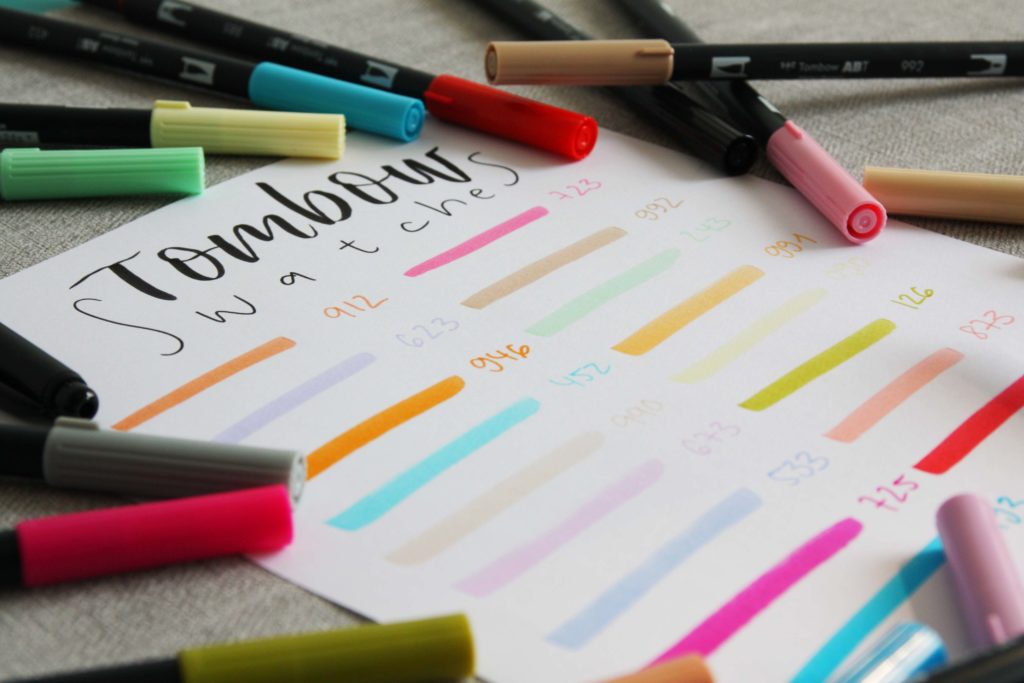 Tombow
Swatches
723
992
243
991
126
873
912
623
946
452
990
673
533
725
Tombow ABT 992